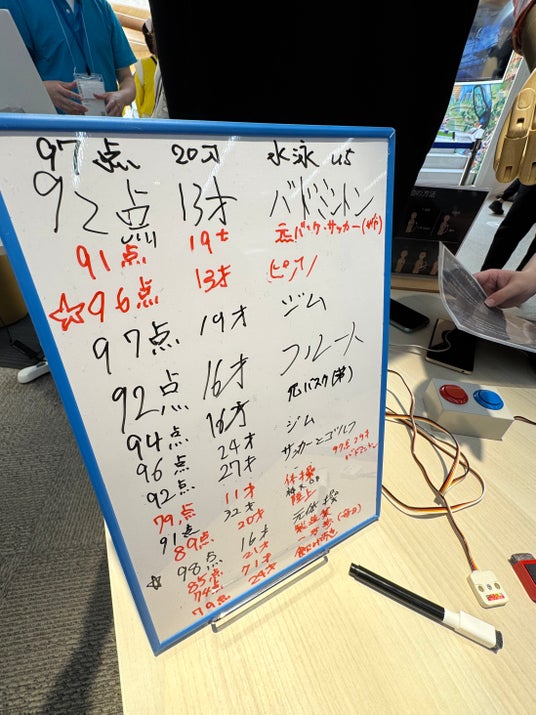 97点 20才 水泳
92点 13才 バドミントン
91点 19才
☆96点 13才 ピアノ
97点 19才 ジム
92点 16才 フルート
94点 16才 元バスケ
96点 24才 ジム
92点 27才 サッカーとゴルフ
97点 29才
79点 11才 体操
91点 32才 陸上
89点 20才 元体操
☆98点 16才
85点 21才
74点 71才
79点 29才